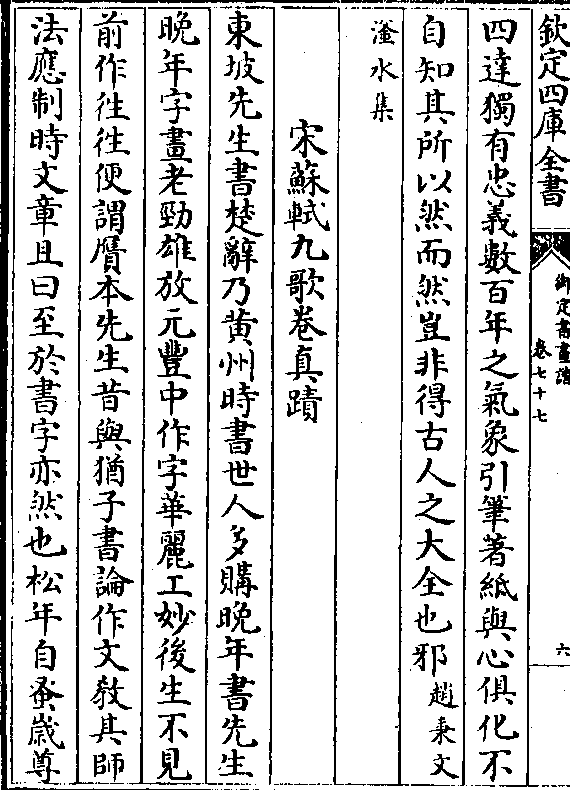 欽定四庫全書
御定書畫譜
卷七十七
六
四達獨有忠義數百年之氣象引筆著紙與心俱化不
自知其所以然而然豈非得古人之大全也邪趙秉文
滏水集
宋蘇軾九歌卷真蹟
東坡先生書楚辭乃黄州時書世人多購晚年書先生
晚年字畫老勁雄放元豐中作字華麗工妙後生不見
前作徃徃便謂贋本先生昔與猶子書論作文教其師
法應制時文章且曰至於書字亦然也松年自蚤歲尊